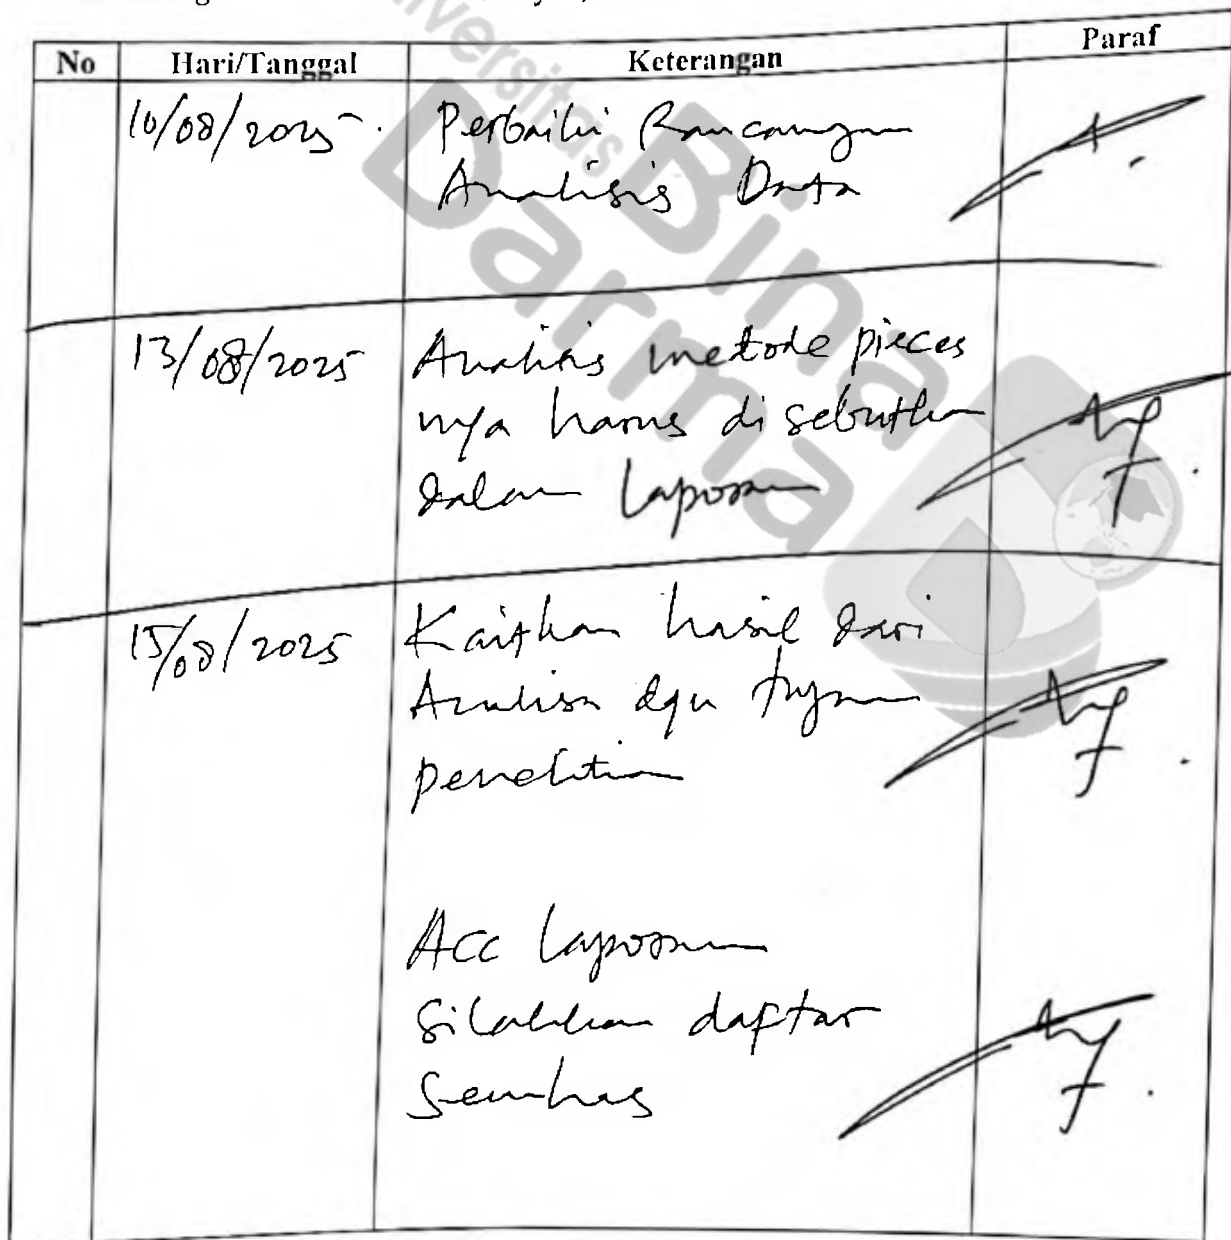 No Hari/Tanggal Keterangan Paraf
Universitas
Bina
Darma
10/08/2025 Perbaiki Rancangan
Analisis Data
13/08/2025 Analisis metode pieces
nya harus di sebutkan
dalam laporan
15/08/2025 Kaitkan hasil dari
Analisa dgn tujuan
penelitian
Acc laporan
Silahkan daftar
Semhas